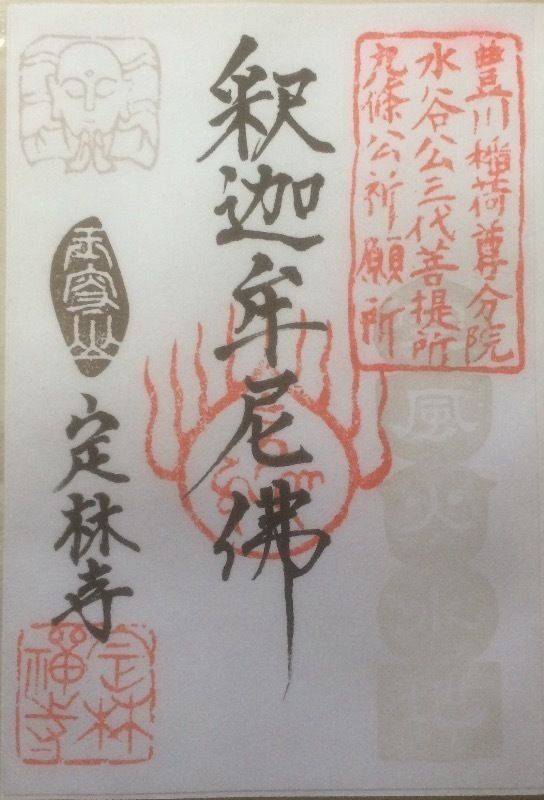 豊川稲荷尊分院
水谷公三代菩提所
九條公祈願所
風火水地
釈迦牟尼佛
定林寺
定林
禅寺